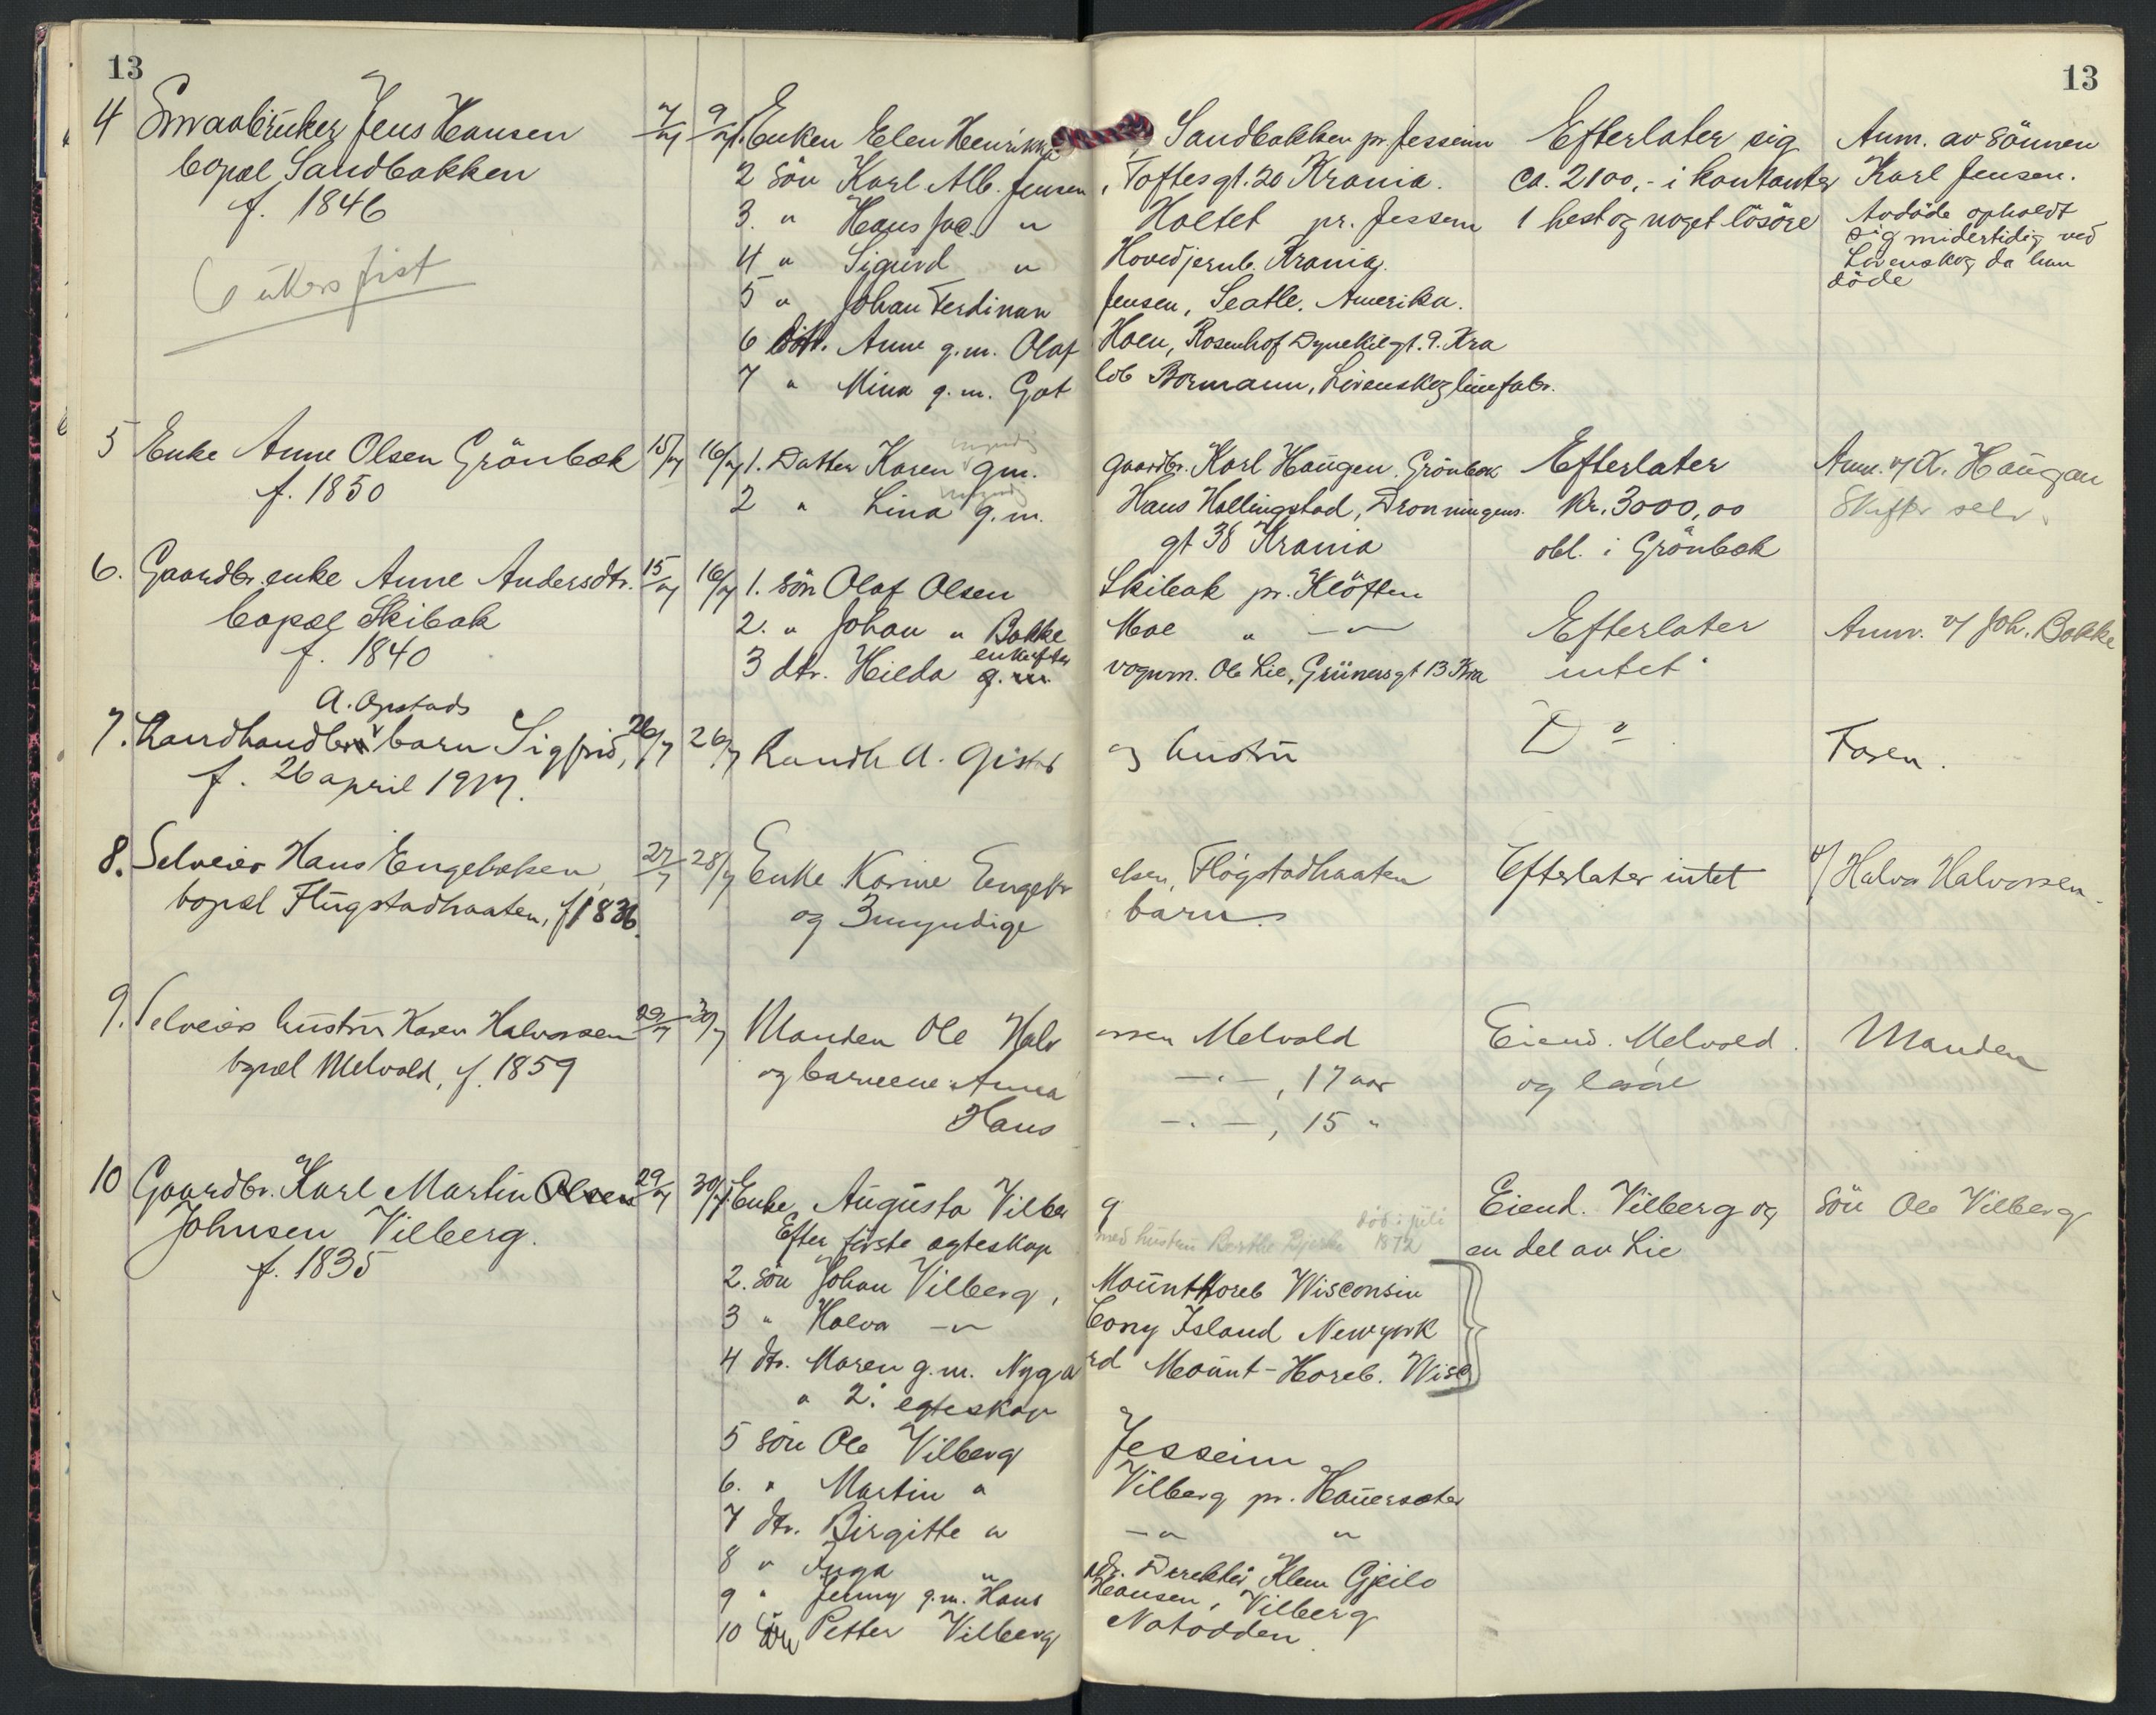 13
13
4 Smaabruker Jens Hansen 7/7 9/7 1. Enken Elen Henrikke, Sandbakken pr. Jesseim Efterlater sig Anm. av sönnen
bopæl Sandbakken 2 Sön Karl Alb. Jensen, Toftesgt. 20 Krania. ca. 2100,- i kontanter Karl Jensen.
f. 1846 3. " Hans Jac. " Holtet pr. Jesseim 1 hest og noget lösöre Avdöde opholdt
sig midertidig ved
6 ukers frist 4 " Sigurd " Hovedjernb. Krania. Lövenskog da han
5 " Johan Ferdinan Jensen, Seatle. Amerika. döde
6 Dtr. Anne g.m. Olaf Hoen, Rosenhof Dynekilgt. 9. Kra
7 " Mina g.m. Got lob Bormann, Lövenskog limfabr.
5 Enke Anne Olsen Grönbæk 15/7 16/7 1. Datter Karen myndig g.m. gaardbr. Karl Haugen. Grönbæk Efterlater Anm. v/ K. Haugan
f. 1850 2 " Lina myndig g.m. Hans Hallingstad, Dronningens. kr. 3000,00 Skifter selv.
gt 38 Krania obl. i Grönbæk
6. Gaardbr. enke Anne Andersdtr. 15/7 16/7 1. sön Olaf Olsen Skibak pr. Klöften
bopæl Skibak 2. " Johan " Bakke Moe " — " — Efterlater Anm. v/ Joh. Bakke
f. 1840 3 dtr. Hilda g.m. enke efter vognm. Ole Lie, Grünersgt 13 Kra intet
A. Opstads
7. Landhandler barn Sigfrid, 26/7 26/7 Landh A. og hustru D o Faren.
f. 26 april 1917.
8. Selveier Hans Engebretsen, 27/7 28/7 Enke Karine Engebr etsen, Flógstadhaaten Efterlater intet v/ Halvor Halvorsen
bopæl Flugstadhaaten, f 1836. og 3 myndige barn.
9. Selveiers hustru Karen Halvorsen 29/7 30/7 Manden Ole Halv orsen Melvold Eiend. Melvold. Manden
bopæl Melvold, f. 1859 og barnene: Anna — " —, 17 aar og løsøre
Hans — " —, 15 "
10 Gaardbr. Karl Martin Olsen 29/7 30/7 1. Enke Augusta Vilber g Eiend. Vilberg og Sön Ole Vilberg
Johnsen Vilberg. Efter förste ægteskap med hustru Berthe Bjerke död i juli 1872 en del av Lie
f. 1835 2. sön Johan Vilberg, Mount Horeb Wisconsin
3 " Halvor — " — Cony Island Newyork
4 dtr. Maren g.m. Nygaa rd Mount-Horeb. Wisc
" 2. egteskap
5 sön Ole Vilberg Jesseim
6. " Martin " Vilberg pr. Hauersæter
7 dtr. Birgitte " — " — "
8 " Inga " adr. Direktör Klem Gjeilo
9 " Jenny g.m. Hans Hansen, Vilberg
10 Sön Petter Vilberg Notodden.